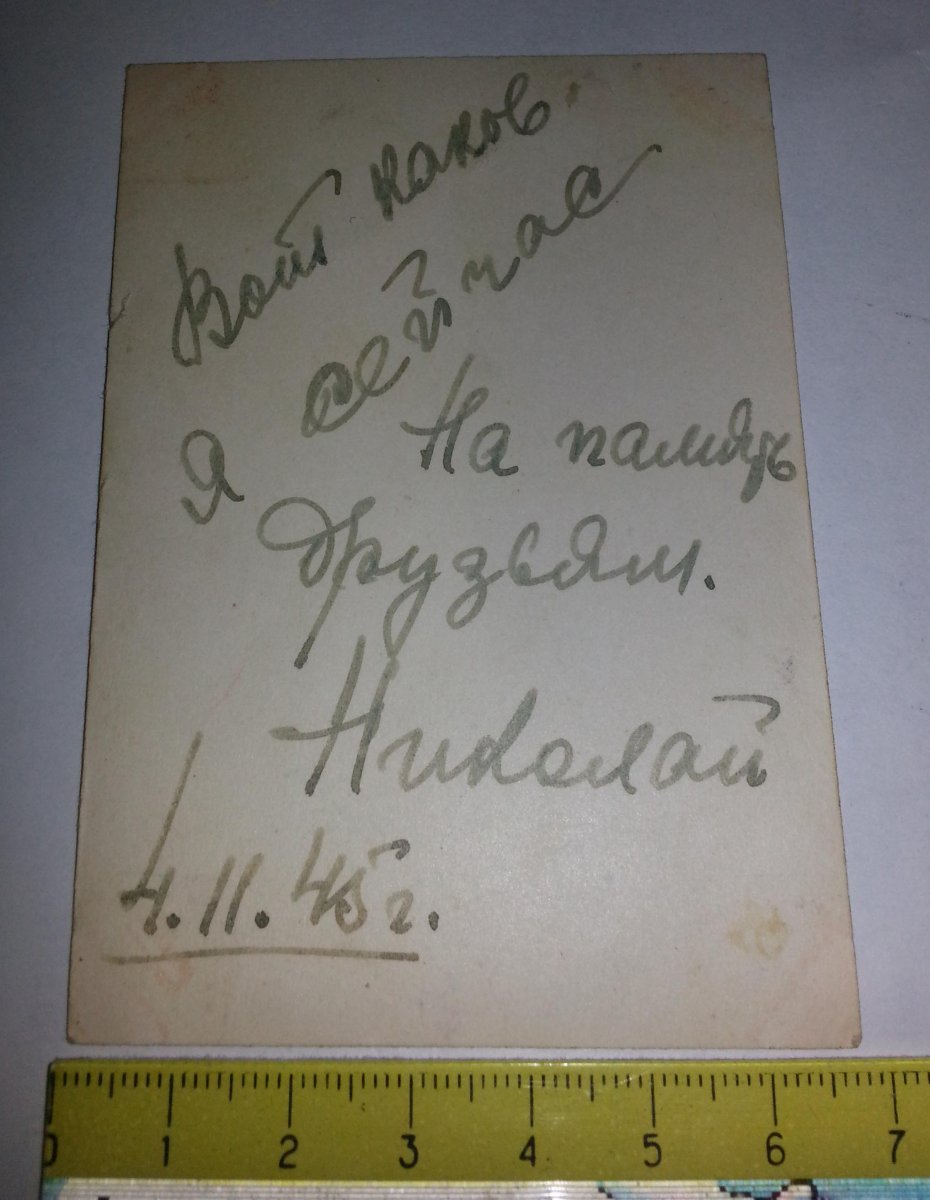 Вот каков
я сейчас
На память
друзьям.
Николай
4.11.45г.
0 1 2 3 4 5 6 7